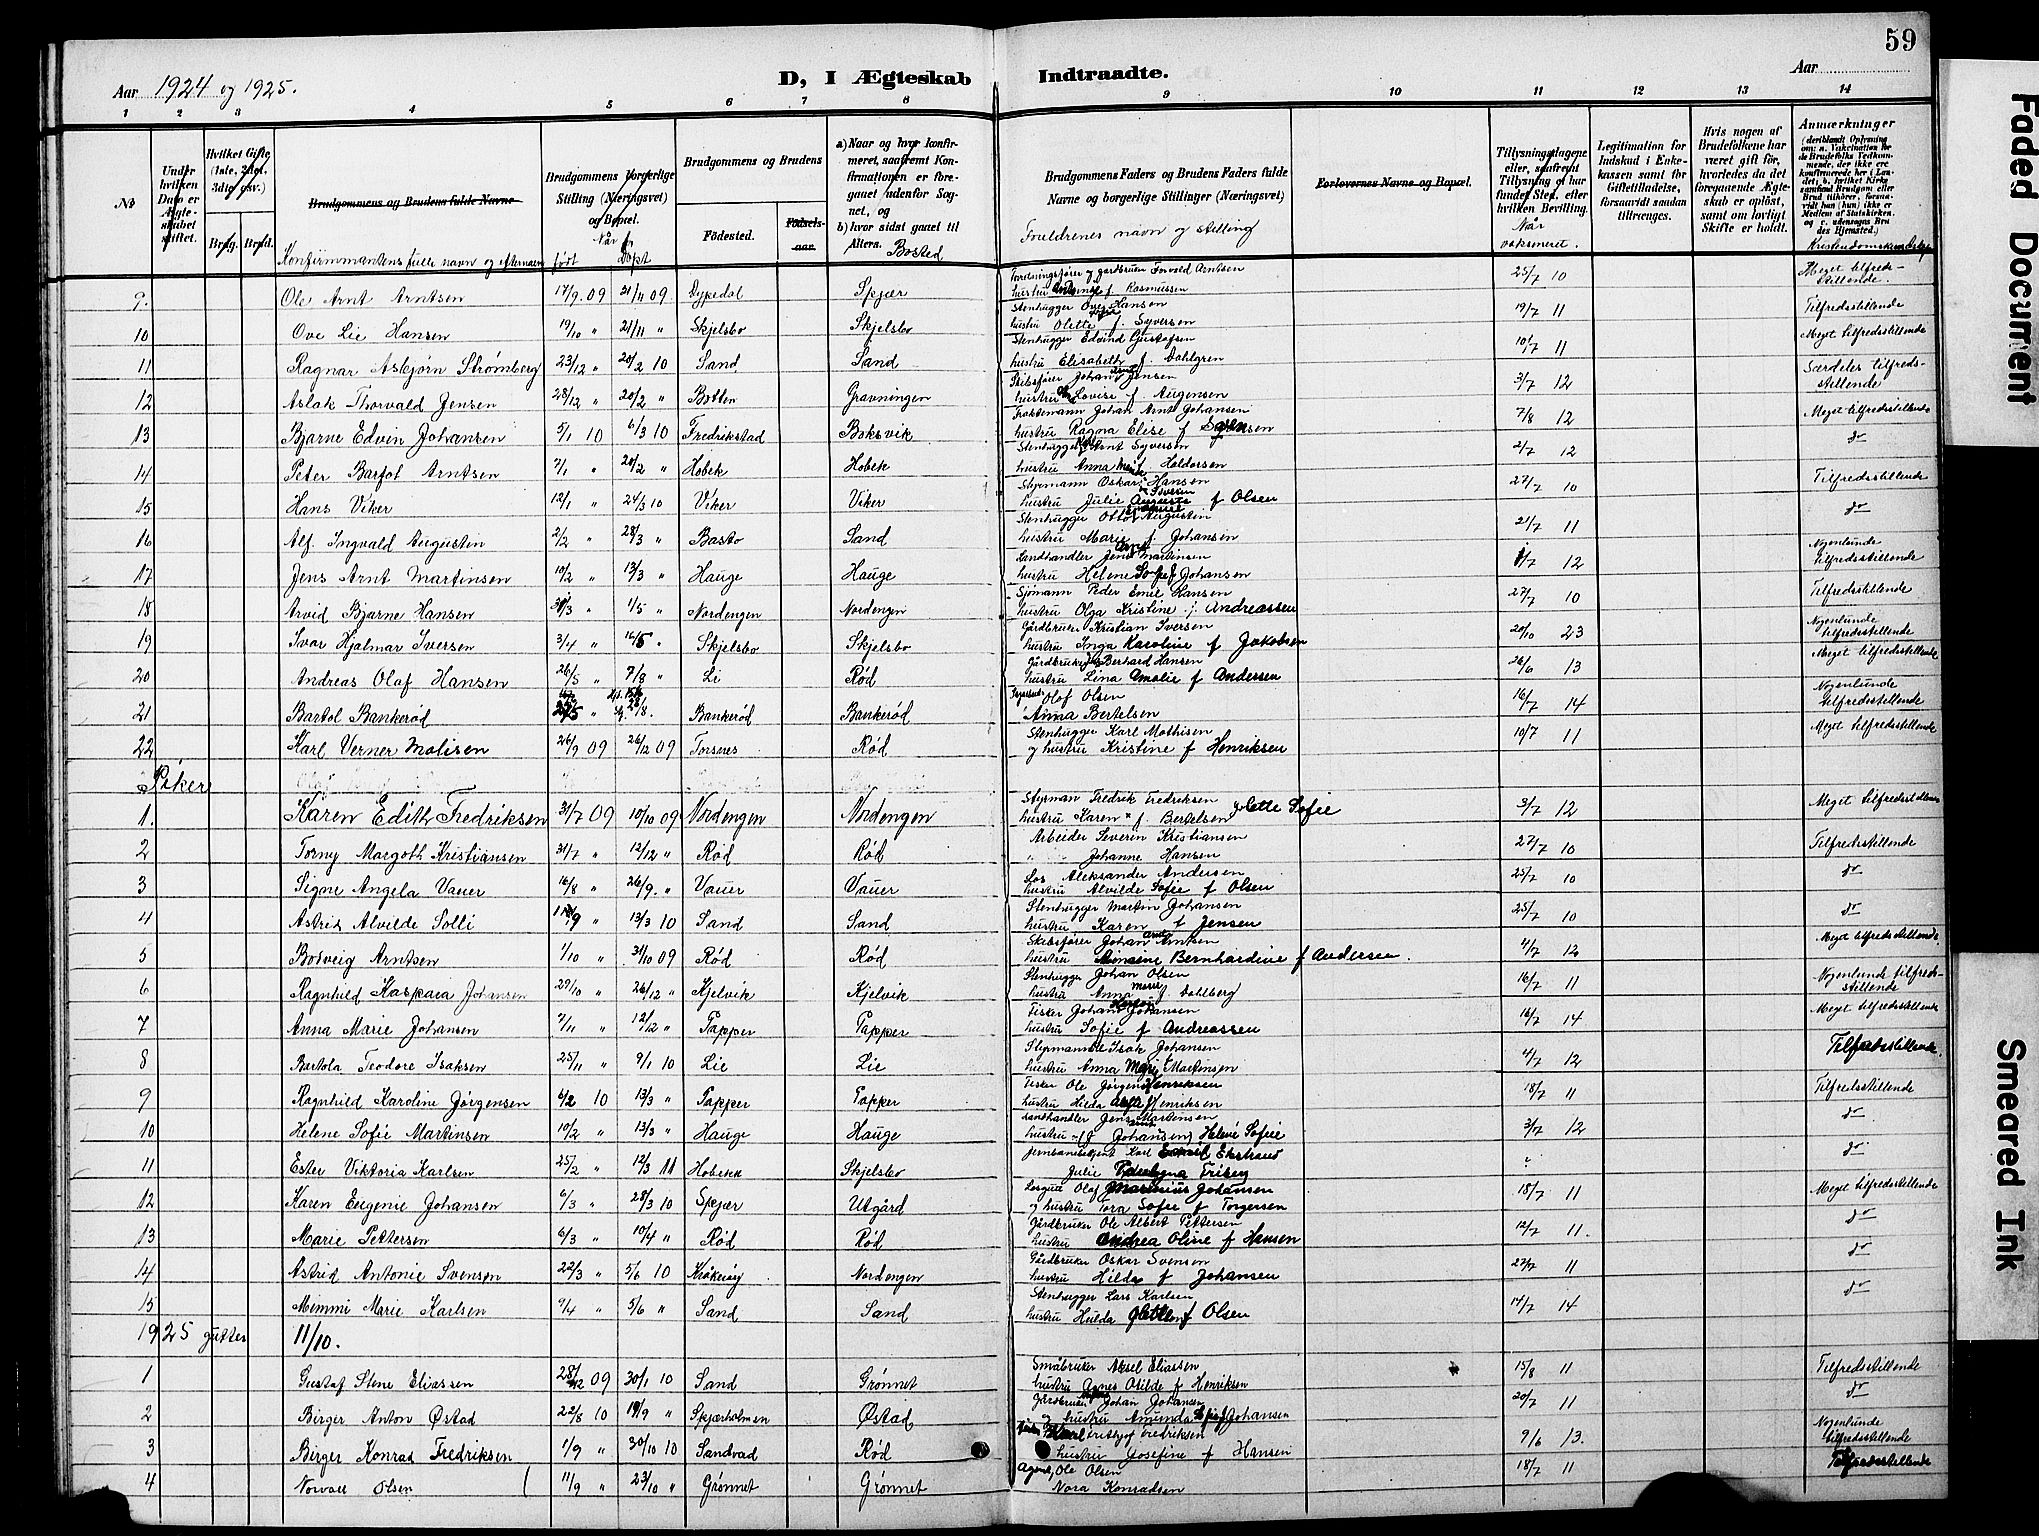 59
Aar 1924 og 1925.
D, I Ægteskab Indtraadte.
Aar
1 2 3 4 5 6 7 8 9 10 11 12 13 14
No
Under hvilken Dato er Ægteskabet stiftet.
Hvilket Gifte (1ste, 2det, 3die gav.)
Brdg. Brud.
Brudgommens og Brudens fulde Navne
Konfirmmantens fulle navn og efternavn
Brudgommens borgerlige Stilling (Næringsvei) og Bopæl.
Når født Døpt
Brudgommens og Brudens
Fødested. Fødselsaar.
a) Naar og hvor konfirmeret, saafremt Konfirmationen er foregaaet udenfor Sognet, og
b) hvor sidst gaaet til Alters.
Bosted
Brudgommens Faders og Brudens Faders fulde Navne og borgerlige Stillinger (Næringsvei)
Fouldrenes navn og stilling
Forlovernes Navne og Bopæl.
Tillysningsdagene eller, saafremt Tillysning ei har fundet Sted, efter hvilken Bevilling.
Når vaksineret.
Legitimation for Indskud i Enkekassen samt for Giftetilladelse, forsaavidt saadan tiltrænges.
Hvis nogen af Brudefolkene har været gift før, hvorledes da det foregaaende Ægteskab er opløst, samt om lovligt Skifte er holdt.
Anmærkninger
9. Ole Arnt Arntsen 17/9 09 21/11 09 Dypedal Spjær 25/7 10 Meget tilfredsstillende.
10 Ove Lie Hansen 19/10 " 21/11 " Skjelsbo Skjelsbo Stenhugger Ove Hansen hustru Olette f. Syversen 19/7 11 Tilfredsstillende
11 Ragnar Asbjørn Strømberg 23/12 " 20/2 10 Sand Sand Stenhugger Edvind Gustafsen hustru Elisabeth f. Dahlgren 10/7 11 Meget tilfredsstillende
12 Aslak Thorvald Jensen 28/12 " 20/2 " Botten Gravningen Skibsfører Johan Jensen hustru Lovise f Augensen 3/7 12 Særdeles tilfredsstillende
13 Bjarne Edvin Johansen 5/1 10 6/3 10 Fredrikstad Boksvik Johan Arnt Johansen hustru Ragna Elise f Sørensen 7/8 12 Meget tilfredsstillende
14 Peter Bartol Arntsen 7/1 " 20/2 " Hobek Hobek Stenhugger Arnt Syversen hustru Anna f Haldorsen 2/7 12 do
15 Hans Viker 12/1 " 24/3 10 Viker Viker Styrmann Oskar Hansen hustru Julie Augusta f Olsen 27/7 10 Tilfredsstillende
16 Alf. Ingvald Augustin 2/2 " 28/3 " Basto Sand Stenhugger Otto Augustin hustru Marie f Johansen 21/7 11 do
17 Jens Arnt Martinsen 10/2 " 13/3 " Hauge Hauge Landhandler Jens Martinsen hustru Helene Sofie f Johansen 12 Nogenlunde tilfredsstillende
18 Arvid Bjarne Hansen 31/3 " 1/5 " Nordengen Nordengen Sjømann Peder Emil Hansen hustru Olga Kristine f. Andreassen 27/7 10 Tilfredsstillende
19 Ivar Hjalmar Iversen 3/4 " 16/5 " Skjelsbo Skjelsbo Gårdbruker Kristian Iversen hustru Inga Karoline f Jakobsen 20/10 23 Nogenlunde tilfredsstillende
20 Andreas Olaf Hansen 26/5 " 7/8 " Li Rød Gårdbruker Berhard Hansen hustru Lina Amalie f Andersen 26/6 13 Meget tilfredsstillende
21 Bartol Bankerød Bankerød Bankerød Olof Olsen Anna Bertelsen 16/7 14 Nogenlunde tilfredsstillende
22 Karl Verner Matisen 26/9 09 26/12 09 Torsnes Rød Stenhugger Karl Mathisen og hustru Kristine f Henriksen 10/7 11 Meget tilfredsstillende
Piker
1. Karen Edith Fredriksen 31/7 09 10/10 09 Nordengen Nordengen Styrman Fredrik Fredriksen hustru Karen f. Bertelsen Olette Sofie 3/7 12 Meget tilfredsstillende
2 Torny Margoth Kristiansen 31/7 " 12/12 " Rød Rød Arbeider Severin Kristiansen Johanne Hansen 27/7 10 Tilfredsstillende
3 Signe Angela Vauer 16/8 " 26/9. " Vauer Vauer Los Aleksander Andersen hustru Alvilde Sofie f Olsen 25/7 10 do
4 Astrid Alvilde Solli " 13/3 10 Sand Sand Stenhugger Martin Johansen hustru Karen f Jensen 25/7 10 do
5 Bodveig Arntsen 1/10 " 31/10 09 Rød Rød Skibsfører Johan Arntsen hustru Bernhardine f Andersen. 4/7 12 Meget tilfredsstillende.
6 Ragnhild Kaspara Johansen 29/10 " 26/12 " Kjelvik Kjelvik Stenhugger Johan Olsen hustru Anna Marie f Dahlberg 16/7 11 Nogenlunde tilfredsstillende
7 Anna Marie Johansen 7/11 " 12/12 " Papper Papper Fisker Johan Johansen hustru Sofie f Andreassen 16/7 14 Meget tilfredsstillende
8 Bartola Teodore Isaksen 25/11 " 9/1 10 Lie Lie Styrmann Isak Johansen hustru Anna Marie f Martinsen 4/7 12 Tilfredsstillende.
9 Ragnhild Karoline Jørgensen 6/2 10 13/3 " Papper Papper Fisker Ole Jørgen Henriksen hustru Hilda f Henriksen 18/7 11 Tilfredsstillende
10 Helene Sofie Martinsen 10/2 " 13/3 " Hauge Hauge Landhandler Jens Martensen hustru (f Johansen) Helene Sofie 3/7 12 do
11 Ester Viktoria Karlsen 25/2 " 12/3 11 Hobekk Skjelsbo Karl Emil Ekstrand Julie Friberg do
12 Karen Eugenie Johansen 6/3 " 28/3 10 Spjær Utgård Losgutt Olaf Marinius Johansen og hustru Tora Sofie f Torgersen 18/7 11 Meget tilfredsstillende
13 Marie Pettersen 6/3 " 10/4 " Rød Rød Gårdbruker Ole Albert Pettersen hustru Andrea Oline f Hansen 12/7 11. do
14 Astrid Antonie Svensen 22/3 " 5/6 10 Kråkerøy Nordengen Gårdbruker Oskar Svensen hustru Hilda f Johansen 22/7 11 do
15 Mimmi Marie Karlsen 9/4 " 5/6 " Sand Sand Stenhugger Lars Karlsen hustru Hulda f Olsen 14/7 14 do
1925 gutter 11/10.
1 Gustaf Stene Eliassen 28/12 09 30/1 10 Sand Grønnet Småbruker Aksel Eliassen hustru Agnes Otilde f Henriksen 15/8 11 Tilfredsstillende
2 Birger Anton Østad 22/8 10 19/9 " Spjærholmen Østad Gårdbruker Johan Johansen og hustru Amunda Sofie f Johansen 20/7 11 do
3 Birger Konrad Fredriksen 1/9 " 30/10 10 Sandvad Rød hustru Josefine f Hansen 9/6 13. Nogenlunde tilfredsstillende
4 Norvall Olsen 11/9 " 23/10 " Grønnet Grønnet Agent, Ole Olsen Nora Konradsen 18/7 11 Tilfredsstillende
Faded Document
Smeared Ink